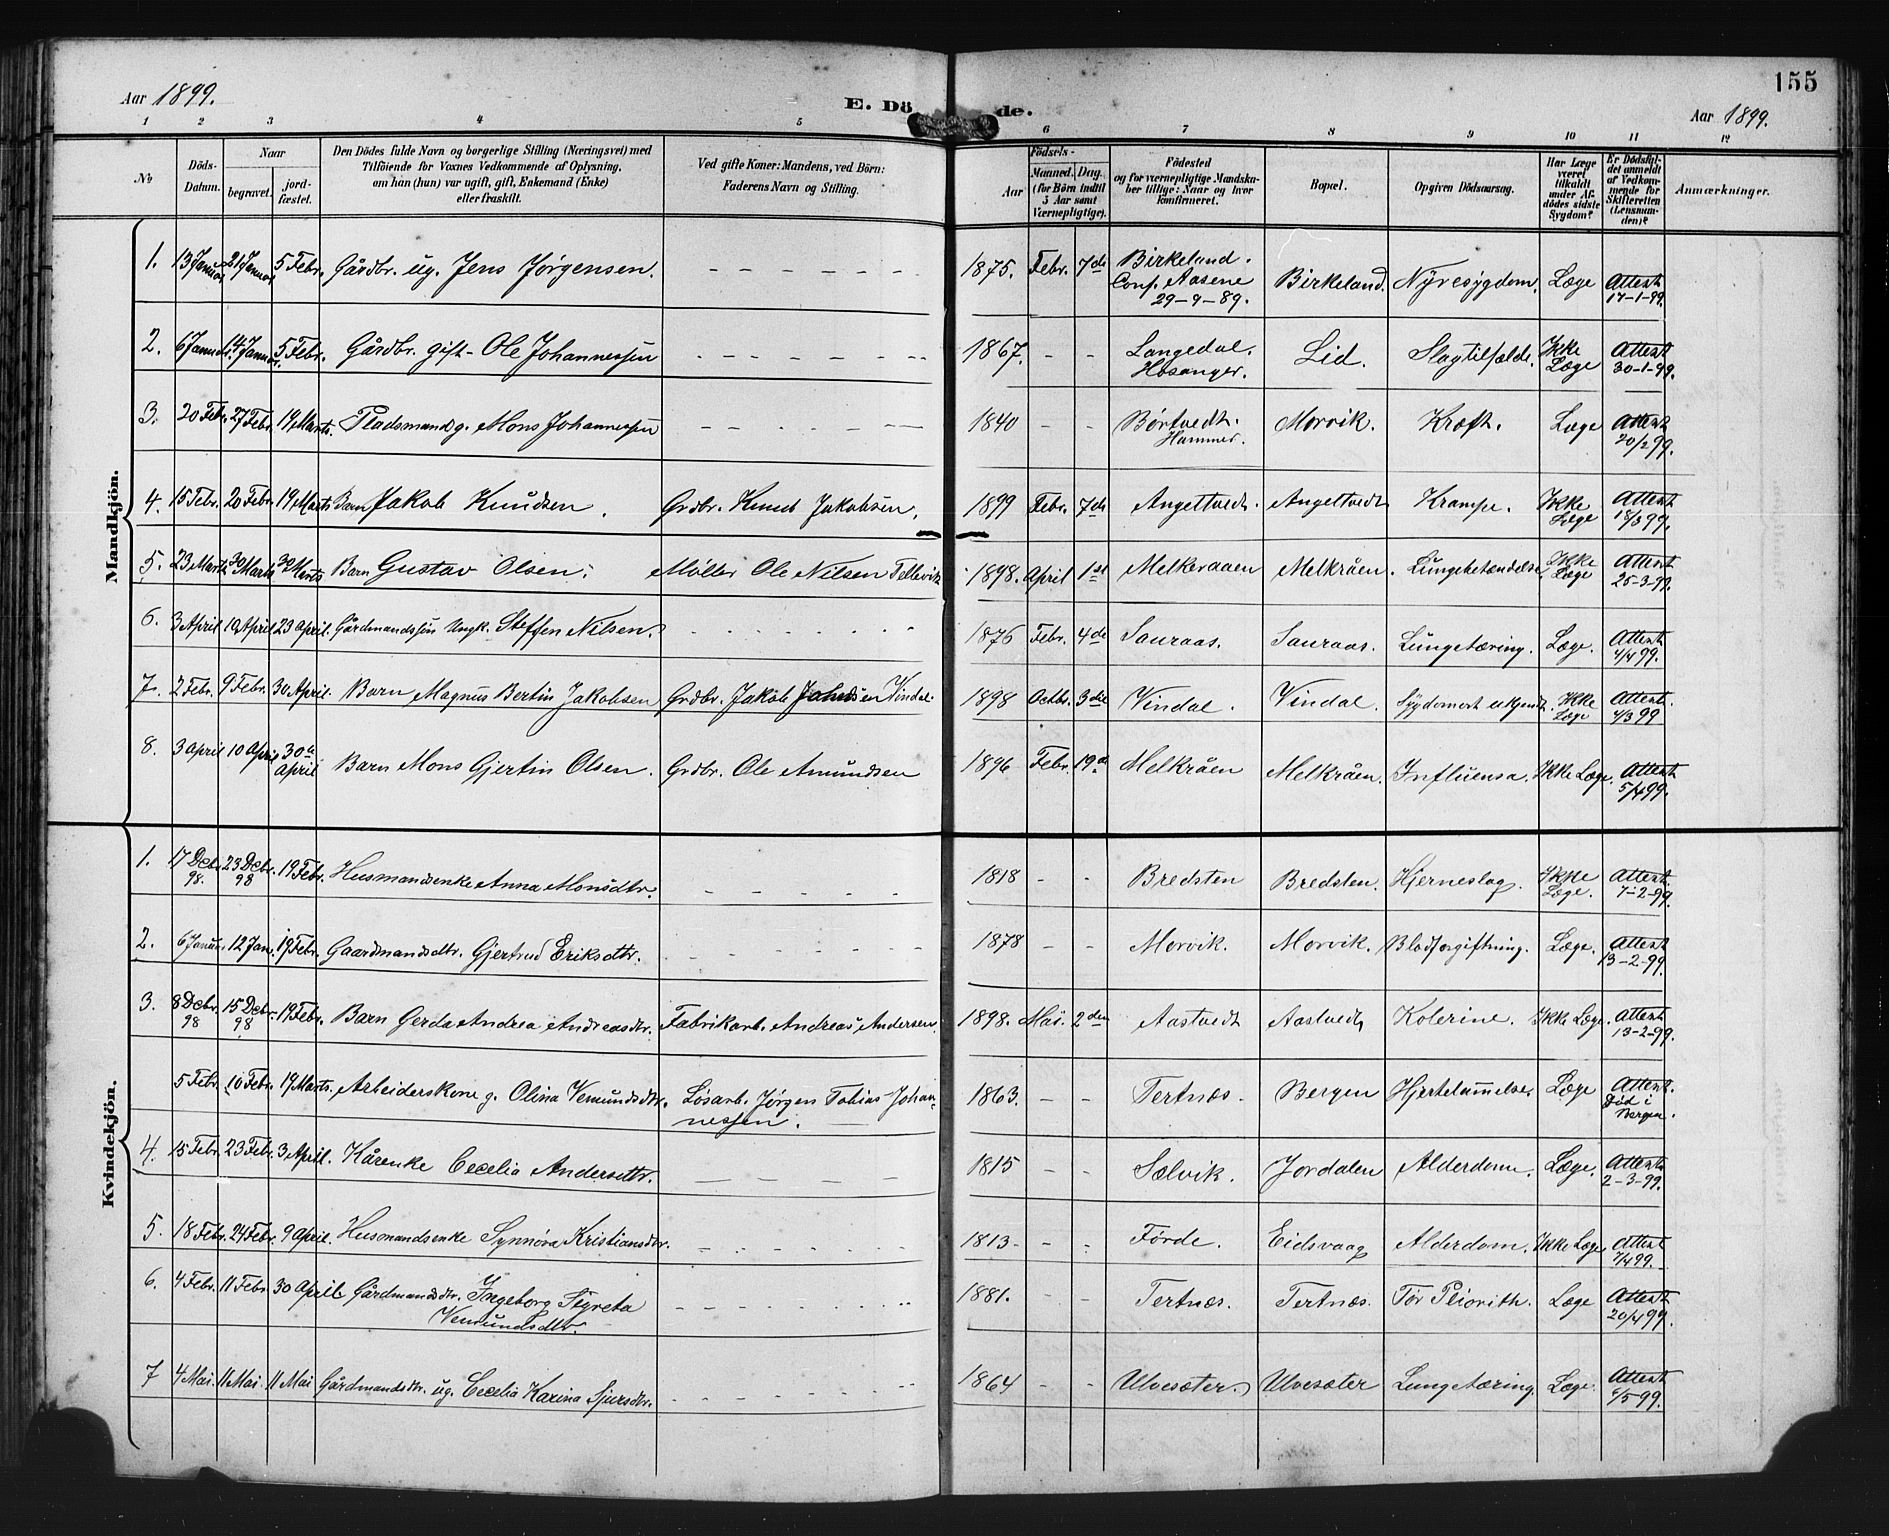 155
Aar 1899. E. Dö de. Aar 1899.
1 2 3 4 5 6 7 8 9 10 11 12
No Döds-Datum. Naar begravet. jord-fæstet. Den Dödes fulde Navn og borgerlige Stilling (Næringsvei) med Tilföiende for Voxnes Vedkommende af Oplysning, om han (hun) var ugift, gift, Enkemand (Enke) eller fraskilt. Ved gifte Koner: Mandens, ved Börn: Faderens Navn og Stilling. Födsels- Aar Maaned. Dag. (for Börn indtil 5 Aar samt Værnepligtige). Födested og for værnepligtige Mandskaber tillige: Naar og hvor konfirmeret. Bopæl. Opgiven Dödsaarsag. Har Læge været tilkaldt under Afdödes sidste Sygdom? Er Dödsfaldet anmeldt af Vedkommende for Skifteretten (Lensmanden)? Anmærkninger.
Mandkjön.
1. 13 Januar 21 Januar 5 Febr. Gårdbr. ug. Jens Jørgensen. – – – – – – 1875. Febr. 7de Birkeland. Conf. Aasene 29-9-89. Birkeland. Nyresygdom. Læge Attest 17-1-99.
2. 6 Januar 14 Januar. 5 Febr. Gårdbr. gift – Ole Johannessen – – – – – – 1867. – – Langedal. Hosanger. Lid. Slagtilfælde. Ikke Læge Attest 30-1-99.
3. 20 Febr. 27 Febr. 19 Marts. Pladsmand g. Mons Johannessen – – – – – – 1840 – – Børtvedt. Hammer. Morvik. Kræft. Læge Attest 20/2 99.
4. 15 Febr. 20 Febr. 19 Marts Barn Jakob Knudsen. Grdbr. Knud Jakobsen. 1899 Febr. 7de Angeltvedt. Angeltvedt Krampe. Ikke Læge Attest 18/3 99.
5. 23 Marts 30 Marts 30 Marts Barn Gustav Olsen. Møller Ole Nilsen Tellevik 1898. April 1st Melkeraaen Melkråen. Lungebetændelse Ikke Læge Attest 25-3-99.
6. 3 April 10 April 23 April. Gårdmandssøn Ungk. Steffen Nilsen. – – – – – – 1876 Febr. 4de Sauraas. Sauraas. Lungetæring. Læge. Attest 4/4 99.
7. 2 Febr. 9 Febr. 30 April. Barn Magnus Bertin Jakobsen Grdbr. Jakob Vindal. 1898 Octbr. 3die Vindal. Vindal. Sygdomsart ukjendt. Ikke Læge Attest. 4/3 99
8. 3 April 10 April 30 April Barn Mons Gjertin Olsen. Grdbr. Ole Amundsen 1896 Febr. 19de Melkråen Melkråen. Influensa. Ikke Læge. Attest 5/4 99.
Kvindekjön.
1. 17 Debr. 98. 23 Debr. 98 19 Febr. Husmandsenke Anna Monsdtr. – – – – – 1818 – – Bredsten Bredsten. Hjerneslag. Ikke Læge. Attest. 7-2-99.
2. 6 Januar. 12 Jan. 19 Febr. Gaardmandsdtr. Gjertrud Eriksdtr. – – – – – 1878 – – Morvik. Morvik. Blodforgiftning. Læge. Attest 13-2-99.
3. 8 Debr. 98 15 Debr. 98 19 Febr. Barn Gerda Andrea Andreasdtr. Fabrikarb. Andreas Andersen. 1898. Mai. 2den Aastvedt Aastvedt Kolerine. Ikke Læge. Attest 13-2-99.
5 Febr. 10 Febr. 19 Marts. Arbeiderskone g. Olina Vemundsdtr. Løsarb. Jørgen Tobias Johan-
nessen. 1863. – – Tertnæs. Bergen Hjertelammelse. Læge Attest Død i Bergen.
4. 15 Febr. 23 Febr. 3 April. Kårenke Cecelia Andersdtr. – – – – 1815 – – Sælvik. Jordalen Alderdom. Læge. Attest 2-3-99.
5. 18 Febr. 24 Febr. 9 April. Husmandsenke Synnøva Kristiansdtr. – – – – – 1813 – – Førde. Eidsvaag Alderdom. Ikke Læge Attest 7/4 99.
6. 4 Febr. 11 Febr. 30 April Gårdmandsdtr. Ingeborg Sigreta
Vemundsdtr. – – – – – – 1881. – – Tertnæs. Tertnæs. Tør Plevrith. Læge Attest 20/4 99.
7 4 Mai. 11 Mai. 11 Mai Gårdmandsdtr. ug. Cecelia Karina Sjursdtr. – – – – – 1864 – – Ulvesæter. Ulvesæter Lungetæring. Læge. Attest 6/5-99.